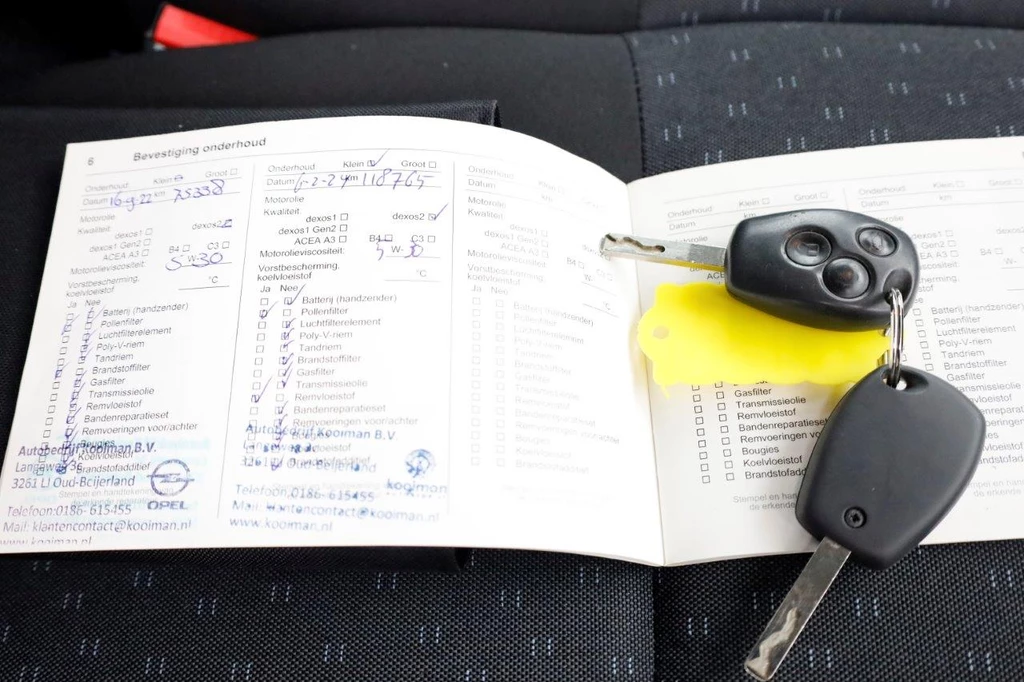 6 Bevestiging onderhoud
Onderhoud Klein Groot
Datum 16-9-22 km 75338
Motorolie
Kwaliteit
dexos1 dexos2
dexos1 Gen2
ACEA A3 B4 C3
Motorolieviscositeit: 5 W- 30
Vorstbescherming,
koelvloeistof °C
Ja Nee
Batterij (handzender)
Pollenfilter
Luchtfilterelement
Poly-V-riem
Tandriem
Brandstoffilter
Gasfilter
Transmissieolie
Remvloeistof
Bandenreparatieset
Remvoeringen voor/achter
Bougies
Koelvloeistof
Brandstofadditief
Autobedrijf Kooiman B.V.
Langeweg 36
3261 LJ Oud-Beijerland
OPEL
Telefoon:0186-615455
Mail: klantencontact@kooiman.nl
www.kooiman.nl
Onderhoud Klein Groot
Datum 6-2-24 km 118765
Motorolie
Kwaliteit
dexos1 dexos2
dexos1 Gen2
ACEA A3 B4 C3
Motorolieviscositeit: 5 W- 30
Vorstbescherming,
koelvloeistof °C
Ja Nee
Batterij (handzender)
Pollenfilter
Luchtfilterelement
Poly-V-riem
Tandriem
Brandstoffilter
Gasfilter
Transmissieolie
Remvloeistof
Bandenreparatieset
Remvoeringen voor/achter
Autobedrijf Kooiman B.V.
3261 LJ Oud-Beijerland
kooiman
Telefoon:0186-615455
Mail: klantencontact@kooiman.nl
www.kooiman.nl
Onderhoud Klein
Datum
Motorolie
Kwaliteit
dexos1
dexos1 Gen2
ACEA A3
Motorolieviscositeit: W-
Vorstbescherming,
koelvloeistof
Ja Nee
Batterij (handzender)
Pollenfilter
Luchtfilterelement
Poly-V-riem
Tandriem
Brandstoffilter
Gasfilter
Transmissieolie
Remvloeistof
Bandenreparatieset
Remvoeringen voor/achter
Bougies
Koelvloeistof
Brandstofadditief
Onderhoud Klein Groot
Datum km
Motorolie
Kwaliteit
Gasfilter
Transmissieolie
Remvloeistof
Bandenreparatieset
Remvoeringen
Bougies
Koelvloeistof
Brandstofadd
Stempel en handtekening
de erkende
Onderhoud Klein
Datum
Pollenfilter
Luchtfilterelement
Poly-V-riem
Tandriem
Brandstoffilter
Gasfilter
Transmissieolie
Remvloeistof